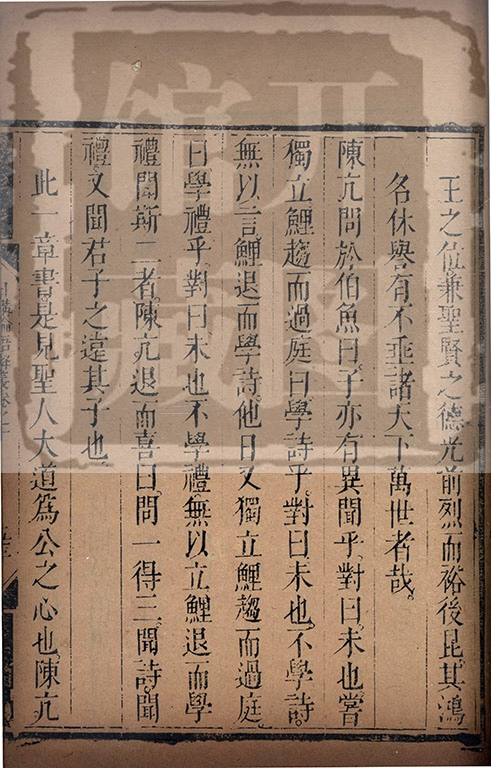 王之位兼聖賢之德光前烈而裕後昆其鴻
名休譽有不垂諸天下萬世者哉
陳亢問於伯魚曰子亦有異聞乎對曰未也嘗
獨立鯉趨而過庭曰學詩乎對曰未也不學詩
無以言鯉退而學詩他日又獨立鯉趨而過庭
曰學禮乎對曰未也不學禮無以立鯉退而學
禮聞斯二者陳亢退而喜曰問一得三聞詩聞
禮又聞君子之遠其子也
此一章書是見聖人大道為公之心也陳亢